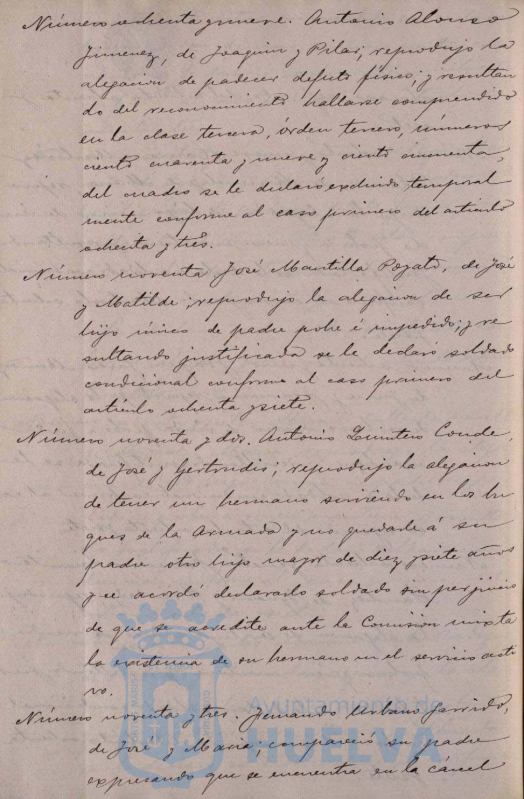 Número ochenta y nueve. Antonio Alonso
Jimenez, de Joaquin y Pilar, reprodujo la
alegacion de padecer defecto físico; y resultan
do del reconocimiento hallarse comprendido
en la clase tercera, órden tercero, números
ciento cuarenta y nueve y ciento cincuenta,
del cuadro se le declaró excluido temporal
mente conforme al caso primero del artículo
ochenta y tres.
Número noventa José Mantilla Pozato, de José
y Matilde; reprodujo la alegacion de ser
hijo único de padre pobre é impedido; y re
sultando justificada se le declaró soldado
condicional conforme al caso primero del
artículo ochenta y siete.
Número noventa y dos. Antonio Quintero Conde,
de José y Gertrudis; reprodujo la alegacion
de tener un hermano sirviendo en los bu
ques de la Armada y no quedarle á su
padre otro hijo mayor de diez y siete años
y se acordó declararlo soldado sin perjuicio
de que se acredite ante la Comision mixta
la existencia de su hermano en el servicio acti
vo.
Número noventa y tres. Fernando Urbano Garrido,
de José y Maria; compareció su padre
expresando que se encuentra en la cárcel
Ayuntamiento de
HUELVA